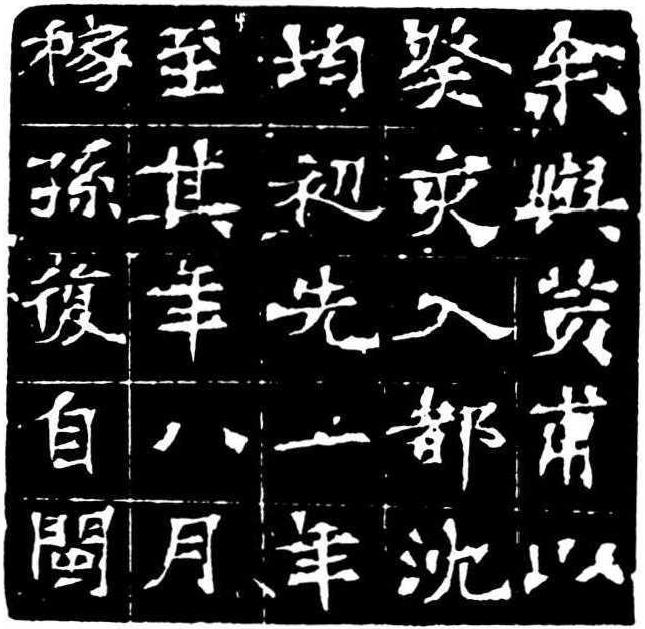 余與荄甫以
癸亥入都沈
均初先一年
至其年八月
稼孫復自閩